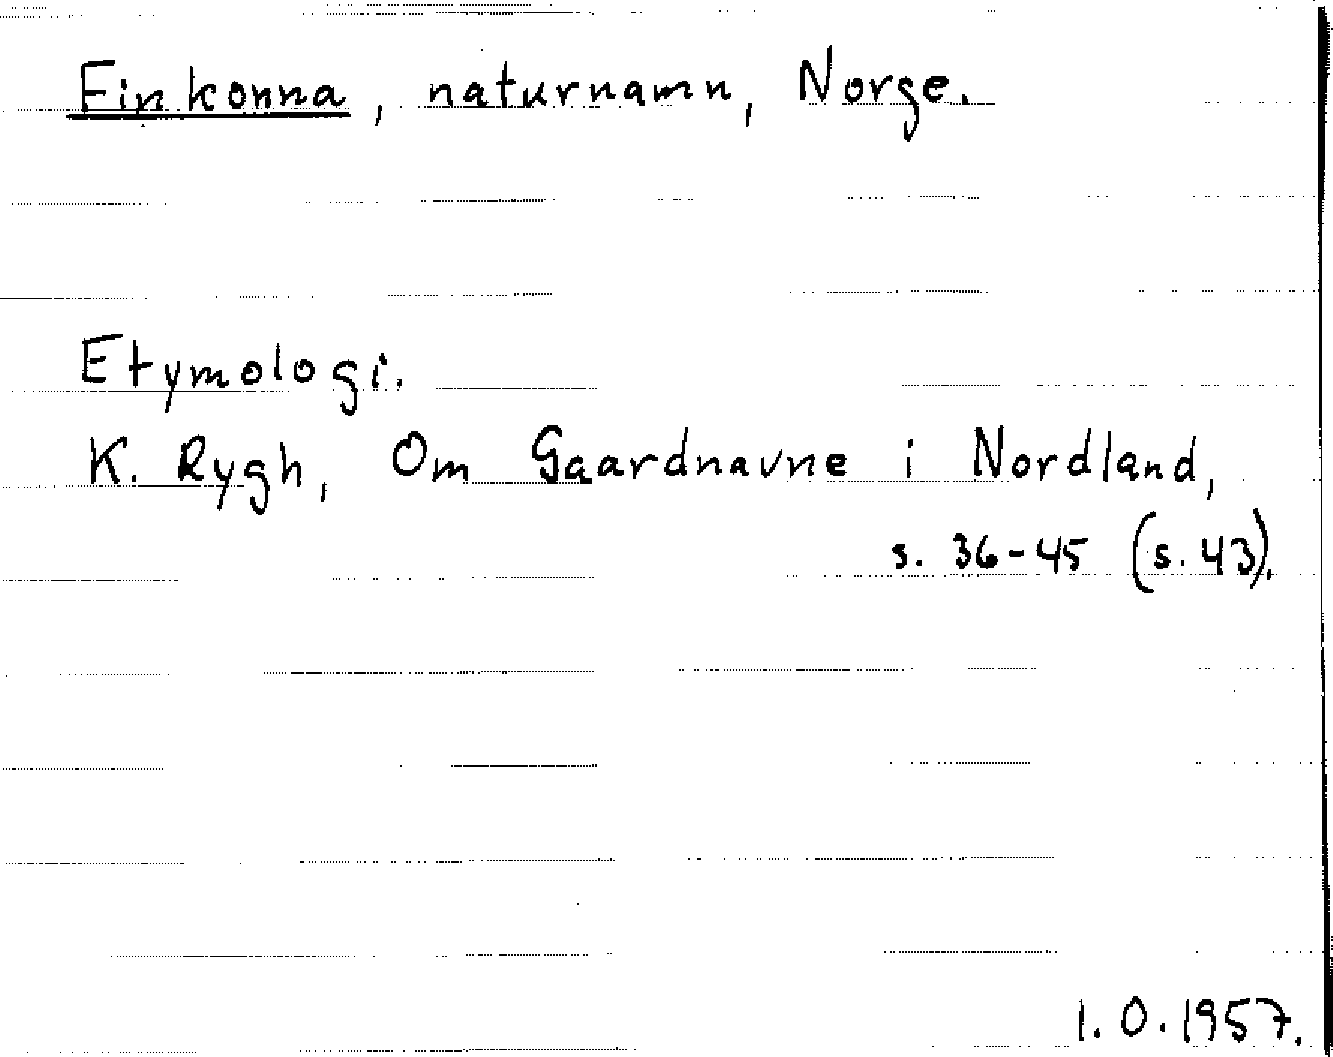 Finkonna, naturnamn, Norge.
Etymologi.
K. Rygh, Om Gaardnavne i Nordland,
s. 36-45 (s. 43).
I.O. 1957.